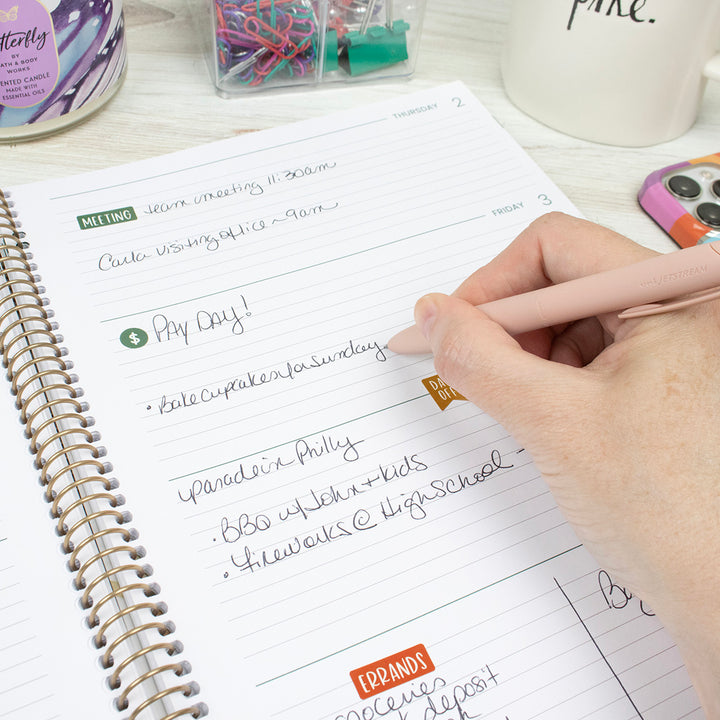 utterfly
BY
ATH & BODY
WORKS
ENTED CANDLE
MADE WITH
ESSENTIAL OILS
THURSDAY 2
MEETING team meeting 11:30am
Carla visiting office ~9am
FRIDAY 3
$ PAY DAY!
• Bake cupcakes for Sunday
DA
OF
parade in Philly
• BBQ w/ John + kids
• Fireworks @ High School -
ERRANDS
groceries
deposit
JETSTREAM